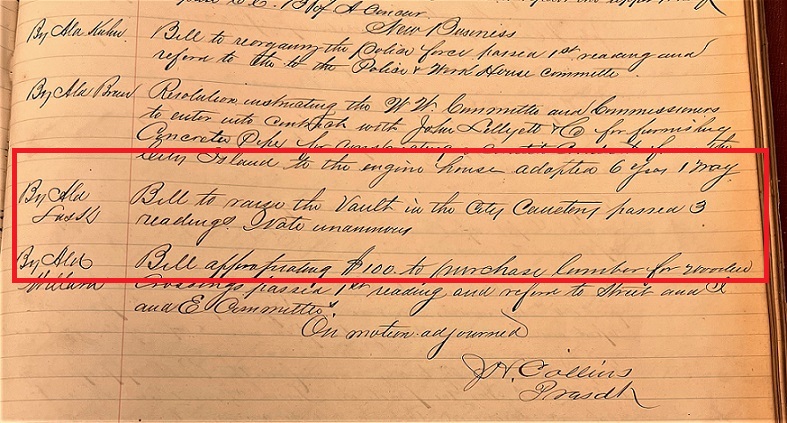 New Business
By Ald Kuhn. Bill to reorganize the Police force passed 1st reading and
referd to the to the Police & Work House Committee
By Ald Resolution instructing the W W Committee and Commissioners
to enter into Contract with John & Co for furnishing
Concrete Pipe for
City Island to the engine house adopted 6 yeas 1 nay
By Ald Bill to raise the Vault in the City Cemetery passed 3
readings. Vote unanimous
By Ald Bill appropriating $100. to purchase lumber for wooden
Crossings passed 1st reading and referd to Street and
and E Committee
On motion adjourned
Collins